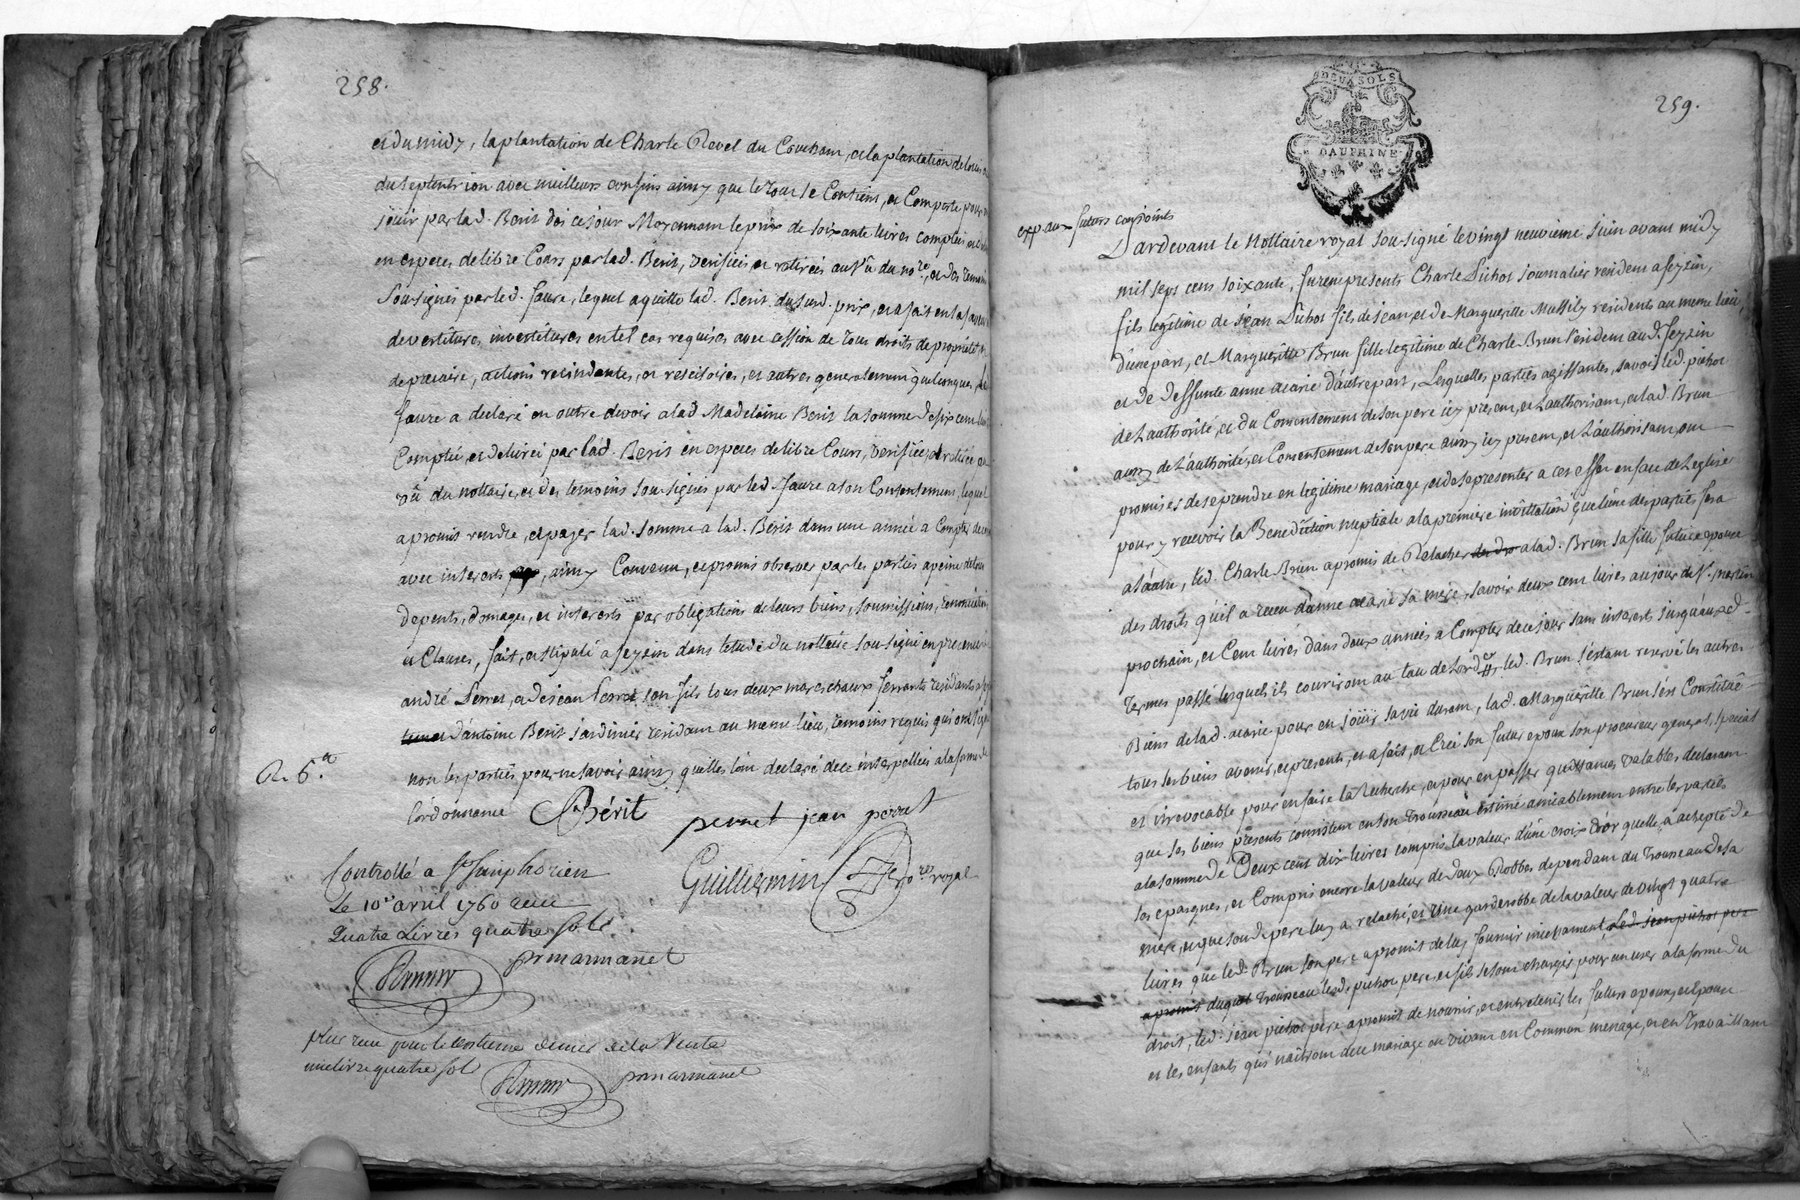 258.
et du midy, la plantation de Charle Revel du Coucham, et la plantation de Louis
du septentrion avec meilleurs confins ainsy que le tout se Contient, et Comporte pour
jöuir par lad. Berit dès ce jour Moyennant le prix de soixante livres comptés
en especes de libre Cours par lad. Berit, verifiées et retirées au vû du no.re, et des temoins
Soussignés par led. faure, lequel a quitté lad. Berit du susd. prix, et a fait en sa faveur
devestitures, investitures en tel cas requises avec cession de tous droits de proprieté
de precaire, actions rescindantes, et rescisoires, et autres generalement quelconques, led.
faure a declaré en outre devoir a lad Madelaine Berit la somme de six cent
Comptée, et delivrée par lad. Berit en especes de libre Cours, verifiées et retirée au
vû du nottaire, et des temoins Soussignés par led. faure a son Contentement, lequel
a promis rendre, et payer lad. somme a lad. Berit dans une année a Compter
avec interets, ainsy Convenu, et promis observer par les parties a peine de tous
depents, domages, et interets par obligations de leurs biens, soumissions, renonciations
et Clauses, fait, et stipulé a feyzin dans l'etude du nottaire soussigné en presence
andré Perret, et de jean Perret son fils tous deux mareschaux ferrants residants
d'antoine Berit jardinier residant au meme lieu, temoins requis qui ont signé
non les parties pour ne savoir ainsy quelles l'ont declaré de ce interpellées a la forme de
R. 5.a
l'ordonnance Bérit perret jean perret
Guillermin no.re royal
Controllé a St Simphorien
Le 10e avril 1760 recu
Quatre Livres quatre sols
prmarmanet
plus recu pour le centieme denier de la Vente
une livre quatre sols
prmarmanet
259.
DEUX SOLS
DAUPHINE
exp. aux futurs conjoints
Pardevant le Nottaire royal soussigné le vingt neuvieme juin avant midy
mil sept cens soixante, furent presents Charle Pichot journalier residant a feyzin,
fils legitime de jean Pichot fils de jean et de Marguerite residents au meme lieu,
d'une part, et Marguerite Brun fille legitime de Charle Brun resident aud. feyzin
et de deffunte anne d'autre part, Lesquelles parties agissantes, savoir led. pichot
de L'authorité, et du Consentement de son pere icy present, et L'authorisant, et lad. Brun
aussy de L'authorité, et Consentement de son pere aussy icy present, et L'authorisant, ont
promis de se prendre en legitime mariage, et de se presenter a cet effet en face de L'eglise
pour y recevoir la Benediction nuptiale a la premiere invitation que l'une des parties fera
a l'autre, led. Charle Brun a promis de Relacher a lad. Brun sa fille future epouse
des droits qu'il a receu d'anne sa mere, savoir deux cent livres au jour de St. martin
prochain, et Cent livres dans deux années a Compter de ce jour sans interets jusqu'aux d.
termes passé lesquels ils couriront au tau de L'ord.ce led. Brun s'etant reservé les autres
Biens de lad. pour en jöuir sa vie durant, lad. Marguerite Brun s'est Constitué
tous ses biens avenir, et presents, et a fait, et Créé son futur epoux son procureur general, special
et irrevocable pour en faire la recherche, et pour en passer quittances valables, declarant
que ses biens présents consistent en son trousseau estimé amiablement entre les parties
a la somme de Deux cent dix livres compris la valeur d'une croix d'or quelle a acheptée de
ses epargnes, et Compris encore la valeur de deux Robbes dependant du trousseau de sa
mere, et que sond. pere luy a relaché, et une garderobbe de la valeur de vingt quatre
livres que led. Brun son pere a promis de luy fournir incessament, led. jean pichot pere
a promis duquel trousseau lesd. pichot pere, et fils se sont chargés pour en user a la forme du
droit, led. jean pichot pere a promit de nourrir, et entretenir les futurs epoux, et epouse
et les enfants qui naitront dud. mariage en vivant en Commun menage, et en travaillant